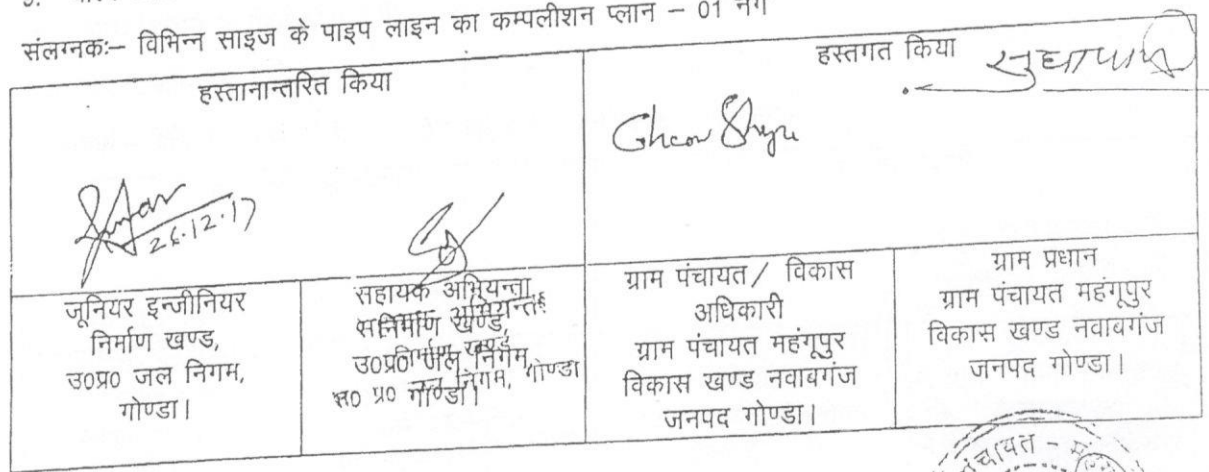 संलग्नकः– विभिन्न साइज के पाइप लाइन का कम्पलीशन प्लान – 01 नग
हस्तानान्तरित किया
हस्तगत किया
26.12.17
जूनियर इन्जीनियर
निर्माण खण्ड,
उ0प्र0 जल निगम,
गोण्डा।
सहायक अभियन्ता
निर्माण खण्ड,
उ0प्र0 जल निगम,
गोण्डा।
सहायक अभियन्ता
निर्माण खण्ड
उ0 प्र0 जल निगम, गोण्डा
ग्राम पंचायत/ विकास
अधिकारी
ग्राम पंचायत महंगूपुर
विकास खण्ड नवाबगंज
जनपद गोण्डा।
ग्राम प्रधान
ग्राम पंचायत महंगूपुर
विकास खण्ड नवाबगंज
जनपद गोण्डा।